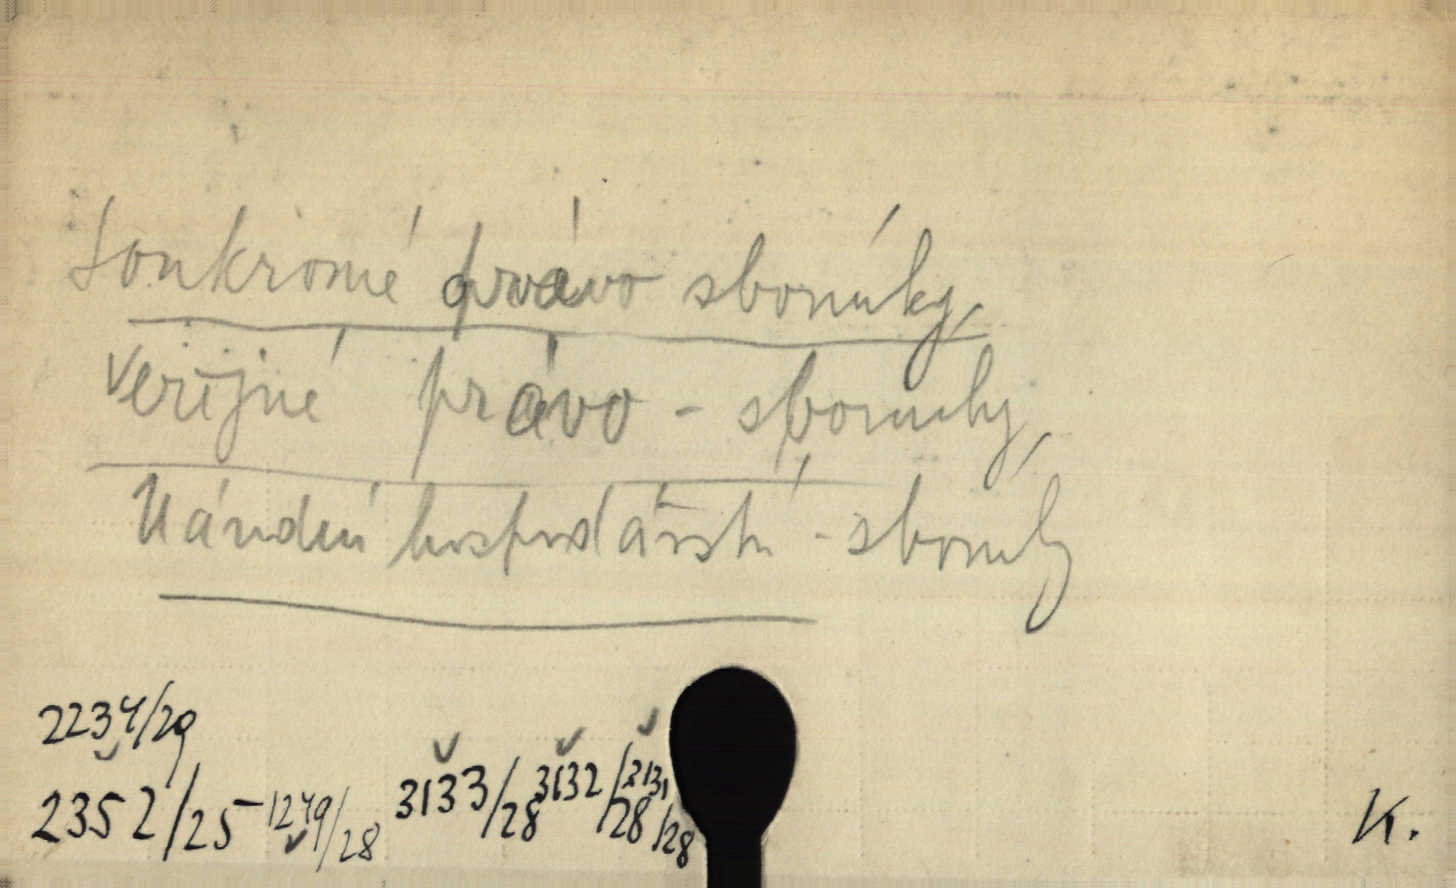 Soukromé právo sborníky,
Veřejné právo - sborníky,
Národní hospodářství - sborníky
2234/29
2352/25 - 1249/28 3133/28 3132/28 3131/28
K.